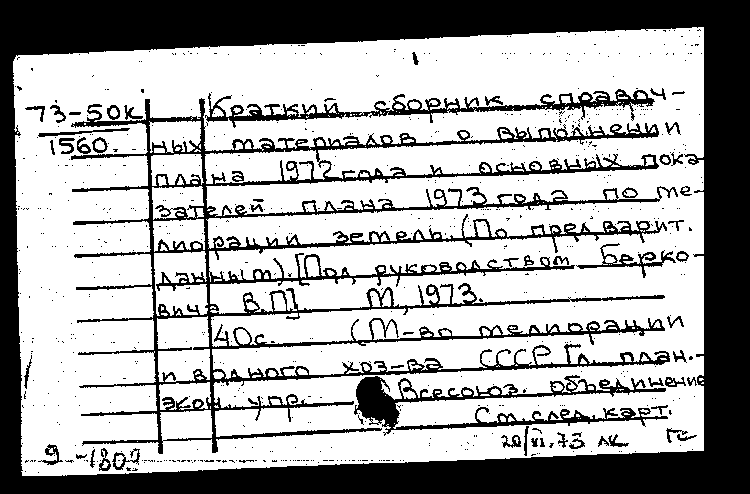 73-50к
1560.
Краткий сборник справоч-
ных материалов о выполнении
плана 1972 года и основных пока-
зателей плана 1973 года по ме-
лиорации земель. (По предварит.
данным). [Под руководством Берко-
вича В.П]. М., 1973.
40с. (М-во мелиорации
и водного хоз-ва СССР Гл. план.-
экон. упр. Всесоюз. объединение
См. след. карт.
20/VI.73 лк Гс
9-1809